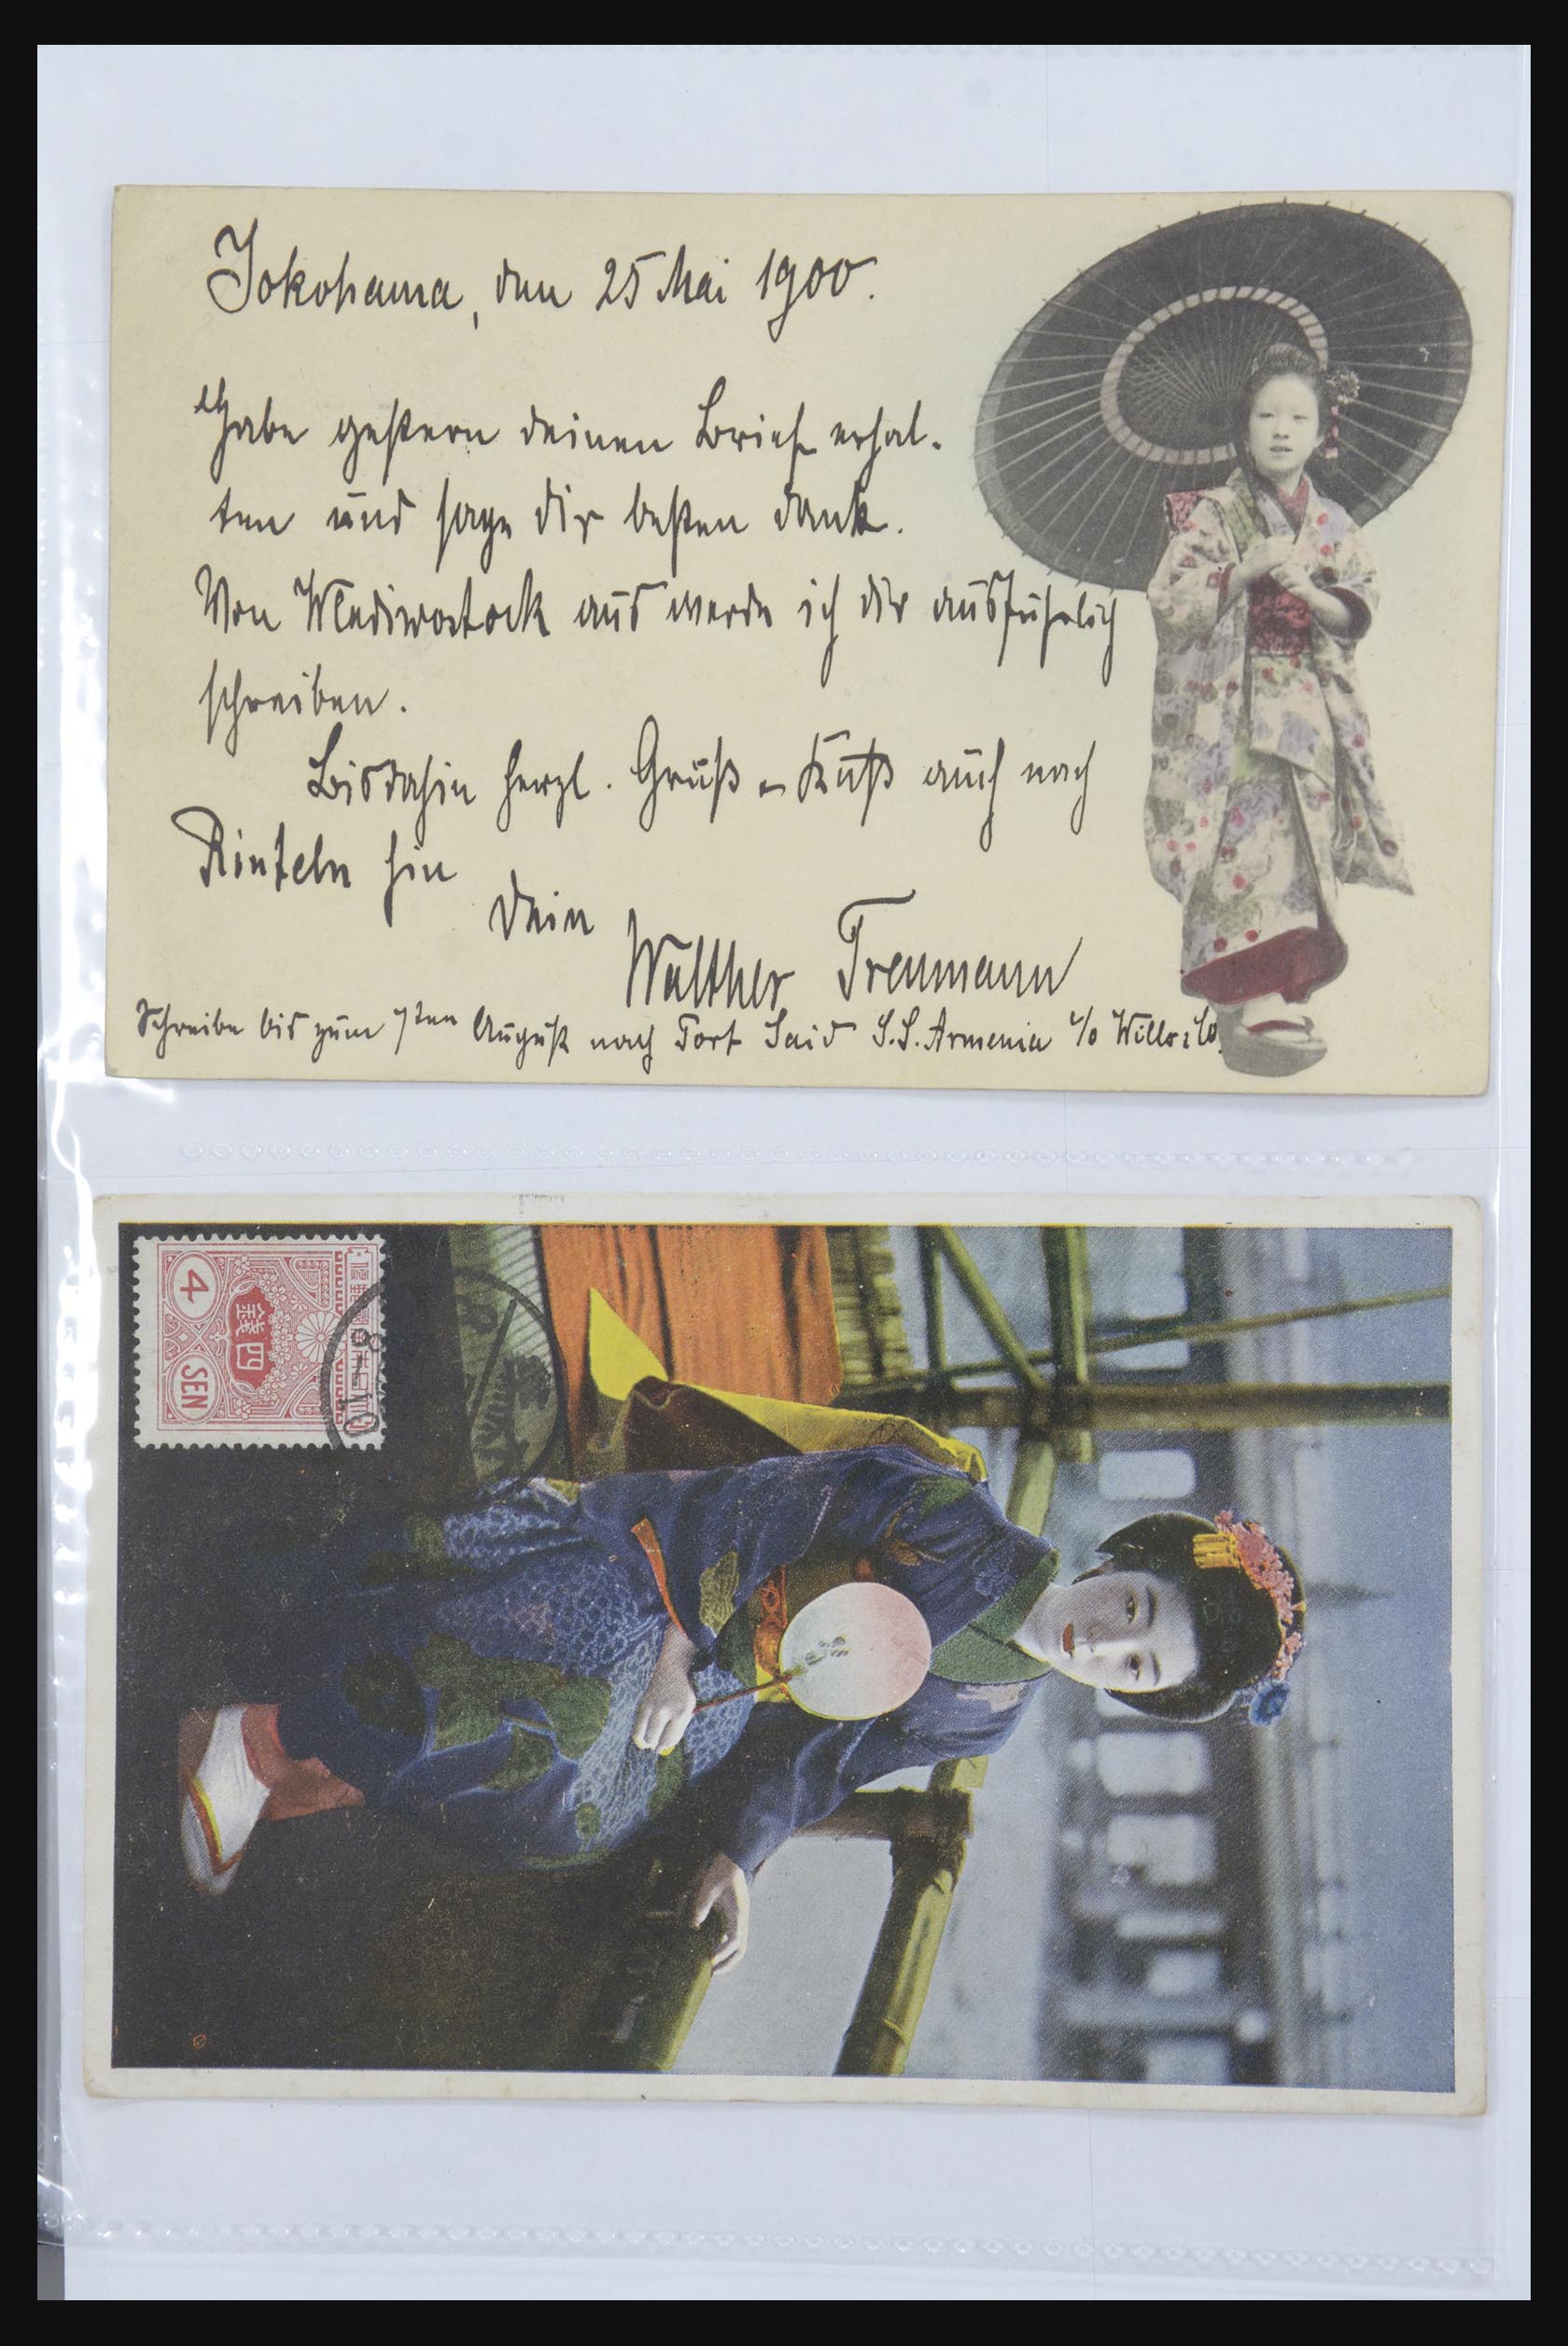 Yokohama, den 25 Mai 1900.
Habe gestern deinen Brief erhal-
ten und sage dir besten Dank.
Von Wladiwostock aus werde ich dir ausführlich
schreiben.
Bis dahin herzl. Gruß u. Kuß auch nach
Rinteln hin
Dein
Walther Treumann
Schreibe bis zum 7ten August nach Port Said S.S. Armenia c/o Wills & Co.
4
四銭
SEN